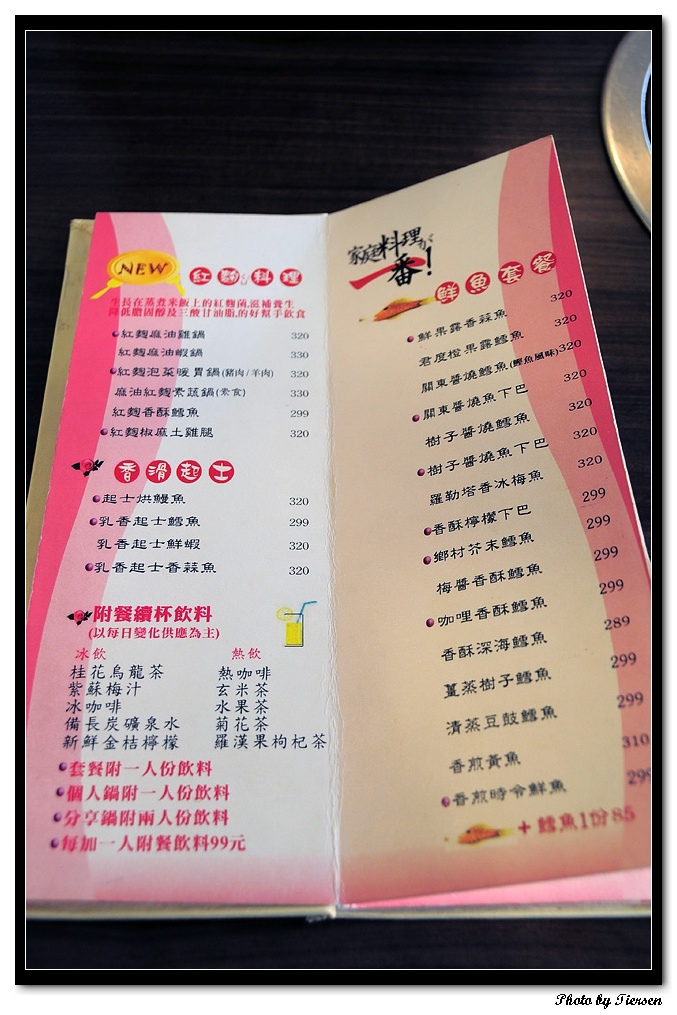 NEW 紅麴料理
生長在蒸煮米飯上的紅麴菌,滋補養生
降低膽固醇及三酸甘油脂,的好幫手飲食
紅麴麻油雞鍋 320
紅麴麻油蝦鍋 330
紅麴泡菜暖胃鍋(豬肉/羊肉) 320
麻油紅麴素蔬鍋(素食) 330
紅麴香酥鱈魚 299
紅麴椒麻土雞腿 320
香滑起士
起士烘鰻魚 320
乳香起士鱈魚 299
乳香起士鮮蝦 320
乳香起士香蒜魚 320
附餐續杯飲料
(以每日變化供應為主)
冰飲 熱飲
桂花烏龍茶 熱咖啡
紫蘇梅汁 玄米茶
冰咖啡 水果茶
備長炭礦泉水 菊花茶
新鮮金桔檸檬 羅漢果枸杞茶
套餐附一人份飲料
個人鍋附一人份飲料
分享鍋附兩人份飲料
每加一人附餐飲料99元
家庭料理が
一番!
鮮魚套餐
鮮果露香蒜魚 320
君度橙果露鱈魚 320
關東醬燒鱈魚(鰹魚風味) 320
關東醬燒魚下巴 320
樹子醬燒鱈魚 320
樹子醬燒魚下巴 320
羅勒塔香冰梅魚 320
香酥檸檬下巴 299
鄉村芥末鱈魚 299
梅醬香酥鱈魚 299
咖哩香酥鱈魚 299
香酥深海鱈魚 289
薑蒸樹子鱈魚 299
清蒸豆鼓鱈魚 299
香煎黃魚 310
香煎時令鮮魚 299
+ 鱈魚1份85
Photo by Tiersen